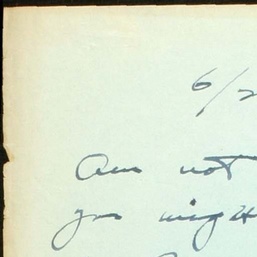 6/2
Am not
you might